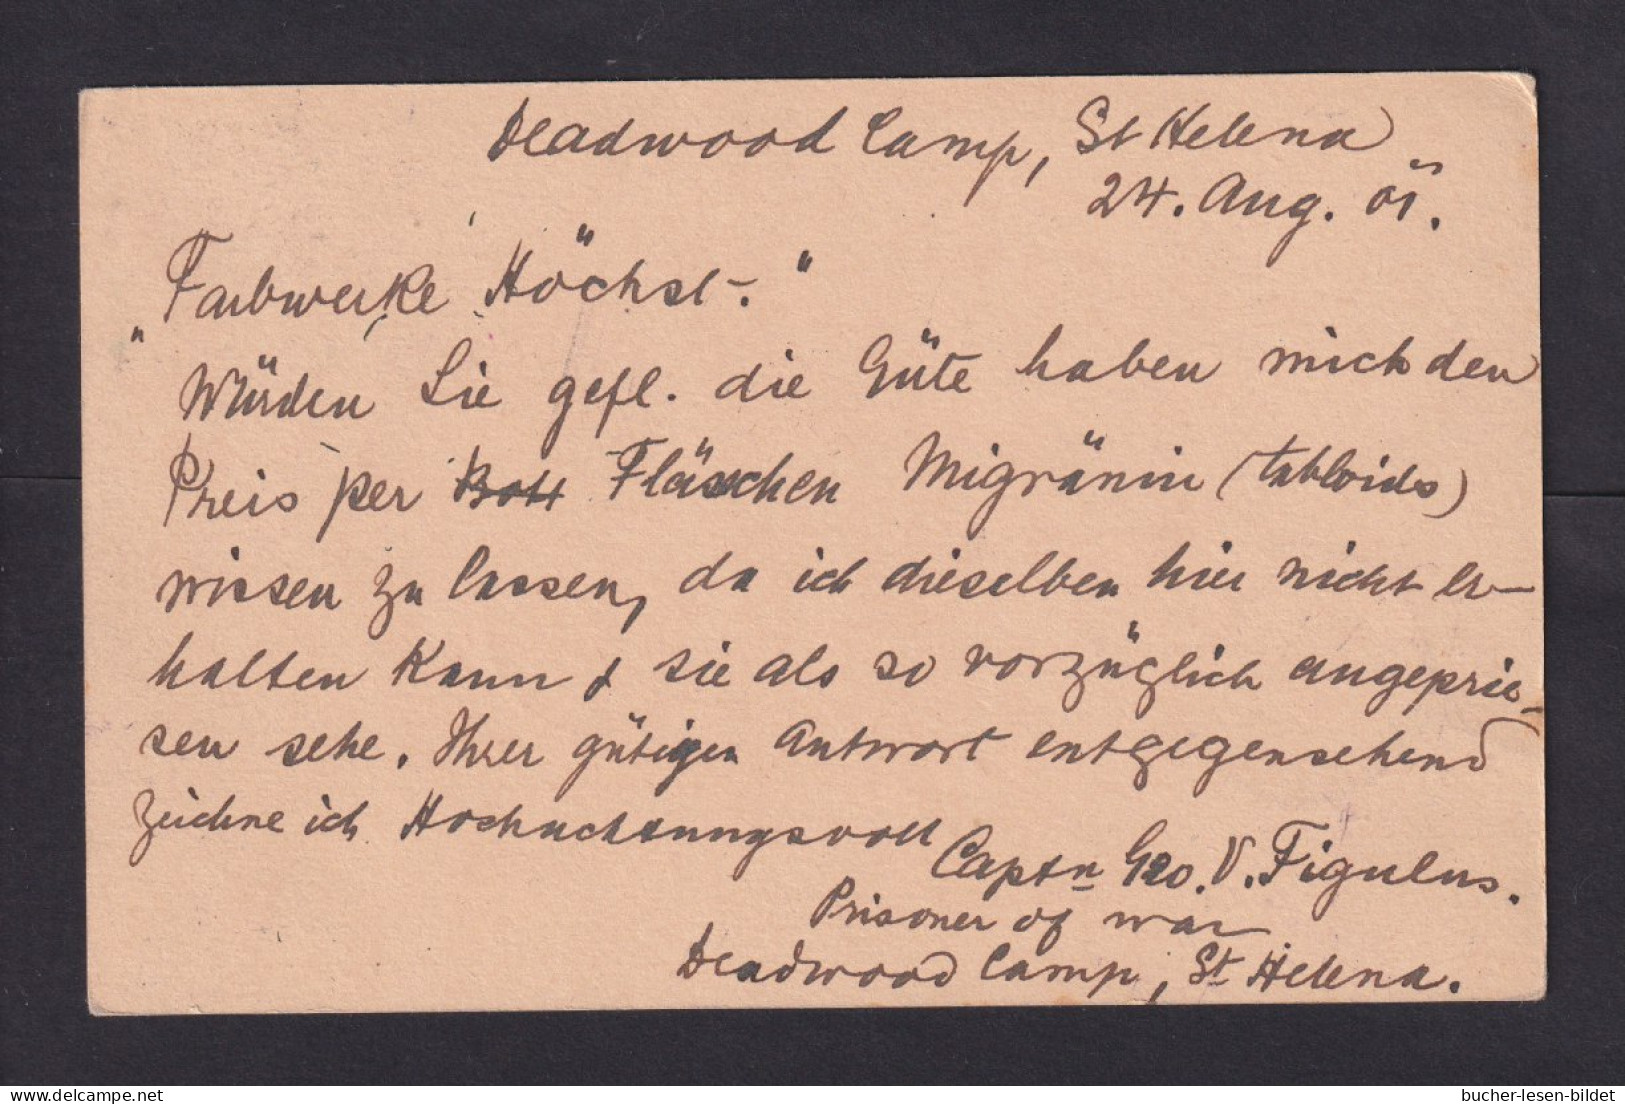 Deadwood Camp, St Helena
24. Aug. 01.
"Farbwerke Höchst-."
Würden Sie gefl. die Güte haben mich den
Preis per Bott Fläschen Migränin (tabloids)
wissen zu lassen, da ich dieselben hier nicht er-
halten kann & sie als so vorzüglich angeprie-
sen sehe. Ihrer gütigen Antwort entgegensehend
zeichne ich Hochachtungsvoll
Captn Geo. V. Figulus.
Prisoner of war
Deadwood Camp, St Helena.
bucher-lesen-bildet
delcampe.net